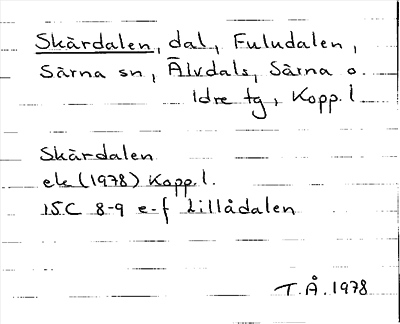 Skärdalen, dal, Fuludalen,
Särna sn, Älvdals, Särna o.
Idre tg, Kopp. l
Skärdalen
ek (1978) Kopp. l.
15C 8-9 e-f Lillådalen
T.Å. 1978